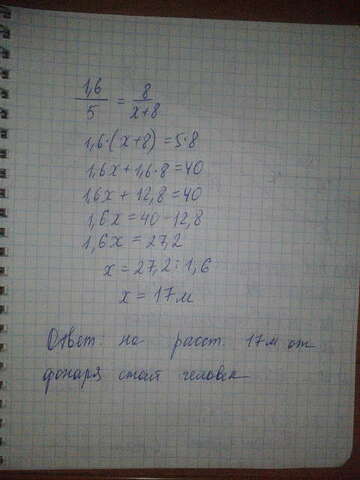 1,6/5 = 8/x+8
1,6·(x+8)=5·8
1,6x+1,6·8=40
1,6x+12,8=40
1,6x=40-12,8
1,6x=27,2
x=27,2:1,6
x=17м
Ответ: на расст. 17м от
фонаря стоит человек